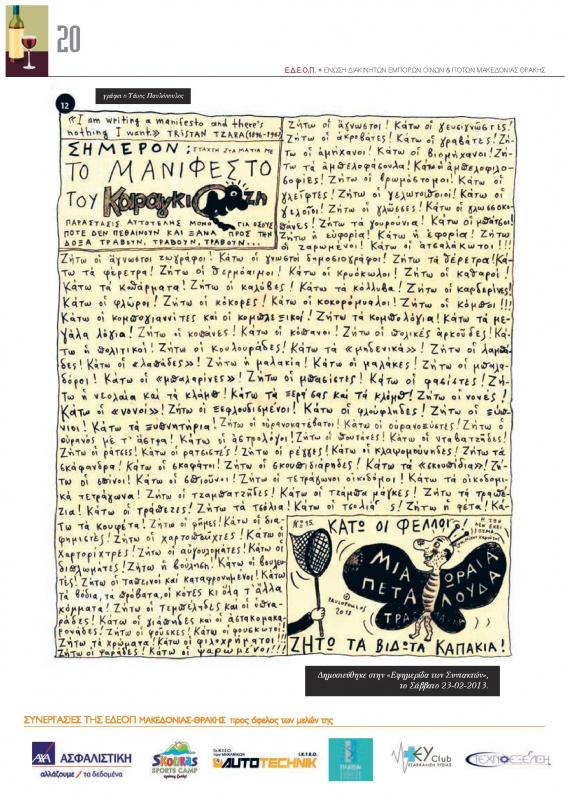 20
Ε.Δ.Ε.Ο.Π. • ΕΝΩΣΗ ΔΙΑΚΙΝΗΤΩΝ ΕΜΠΟΡΩΝ ΟΙΝΩΝ & ΠΟΤΩΝ ΜΑΚΕΔΟΝΙΑΣ ΘΡΑΚΗΣ
12
γράφει ο Τάσος Παυλόπουλος
«I am writing a manifesto and there's
nothing I want» TRISTAN TZARA (1896-1963)
ΣΗΜΕΡΟΝ:
ΤΟ ΜΑΝΙΦΕΣΤΟ
ΤΟΥ Καραγκιοζη
ΠΑΡΑΣΤΑΣΙΣ ΑΥΤΟΤΕΛΗΣ ΜΟΝΟ ΓΙΑ ΟΣΟΥΣ
ΠΟΤΕ ΔΕΝ ΠΕΘΑΙΝΟΥΝ ΚΑΙ ΞΑΝΑ ΠΡΟΣ ΤΗΝ
ΔΟΞΑ ΤΡΑΒΟΥΝ, ΤΡΑΒΟΥΝ, ΤΡΑΒΟΥΝ...
Ζήτω οἱ ἄγνωστοι! Κάτω οἱ γευσιγνῶστες!
Ζήτω οἱ ἀκροβάτες! Κάτω οἱ γραβάτες! Ζή-
τω οἱ ἀμήχανοι! Κάτω οἱ βιομήχανοι! Ζή-
τω τά ἀμπελοφάσουλα! Κάτω οἱ ἀμπελοφιλο-
σοφίες! Ζήτω οἱ βρωμόστομοι! Κάτω οἱ
γλείφτες! Ζήτω οἱ γελωτοποιοί! Κάτω οἱ
γελοῖοι! Ζήτω οἱ γλῶσσες! Κάτω οἱ γλωσσοκο-
πάνες! Ζήτω τά γουρούνια! Κάτω οἱ μπάτσοι!
Ζήτω ἡ εὐφορία! Κάτω ἡ ἐφορία! Ζήτω
οἱ ζαρωμένοι! Κάτω οἱ ἀτσαλάκωτοι!!!
Ζήτω οἱ ἄγνωστοι ζωγράφοι! Κάτω οἱ γνωστοί δημοσιογράφοι! Ζήτω τά δέρετρα! Κά-
τω τά φέρετρα! Ζήτω οἱ θερμόαιμοι! Κάτω οἱ κρυόκωλοι! Ζήτω οἱ καθαροί!
Κάτω τά καθάρματα! Ζήτω οἱ καλύβες! Κάτω τά κόλλυβα! Ζήτω οἱ καρδερίνες!
Κάτω οἱ φλῶροι! Ζήτω οἱ κόκορες! Κάτω οἱ κοκορόμυαλοι! Ζήτω οἱ κόμποι!!!
Κάτω οἱ κομπογιαννίτες καί οἱ κομπλεξικοί! Ζήτω τά κομπολόγια! Κάτω τά με-
γάλα λόγια! Ζήτω οἱ κοπάνες! Κάτω οἱ κόπανοι! Ζήτω οἱ πολικές ἀρκοῦδες! Κά-
τω ἡ πολιτική! Ζήτω οἱ κουλουράδες! Κάτω τά «μηδενικά»! Ζήτω οἱ λαμπά-
δες! Κάτω οἱ «λαπάδες»! Ζήτω ἡ μαλακία! Κάτω οἱ μαλάκες! Ζήτω οἱ μπαλα-
δόροι! Κάτω οἱ «μπαλαρίνες»! Ζήτω οἱ μπασίστες! Κάτω οἱ φασίστες! Ζή-
τω ἡ νεολαία καί τά κλάμπ! Κάτω τά ξερά σας καί τά κλόμπ! Ζήτω οἱ νονές!
Κάτω οἱ «νονοί»! Ζήτω οἱ ξεφλουδισμένοι! Κάτω οἱ φλούφληδες! Ζήτω οἱ ξύπ-
νιοι! Κάτω τά ξυπνητήρια! Ζήτω οἱ οὐρανοκατέβατοι! Κάτω οἱ οὐρανοξύστες! Ζήτω ὁ
οὐρανός μέ τ' ἄστρα! Κάτω οἱ ἀστρολόγοι! Ζήτω οἱ πουτάνες! Κάτω οἱ νταβατζῆδες!
Ζήτω οἱ ράτσες! Κάτω οἱ ρατσιστές! Ζήτω οἱ ρέγγες! Κάτω οἱ κλαψομούνηδες! Ζήτω τά
σκάφανδρα! Κάτω οἱ σκαφάτοι! Ζήτω οἱ σκουπιδιάρηδες! Κάτω τά «σκουπίδια»! Ζή-
τω οἱ σπίνοι! Κάτω οἱ σπιοῦνοι! Ζήτω οἱ τετράγωνοι οἰκοδόμοι! Κάτω τά οἰκοδομι-
κά τετράγωνα! Ζήτω οἱ τζαμπατζῆδες! Κάτω οἱ τζάμπα μάγκες! Ζήτω τά τραπέ-
ζια! Κάτω οἱ τράπεζες! Ζήτω τά τσόλια! Κάτω οἱ τσολιάδες! Ζήτω ἡ φέτα! Κά-
τω τά κουφέτα! Ζήτω οἱ φῆμες! Κάτω οἱ δια-
φημιστές! Ζήτω οἱ χαρτοπαῖχτες! Κάτω οἱ
χαρτορίχτρες! Ζήτω οἱ αὐγουλομάτες! Κάτω οἱ
διπλωμάτες! Ζήτω ἡ βούληση! Κάτω οἱ βουλευ-
τές! Ζήτω οἱ ταπεινοί καί καταφρονεμένοι! Κάτω
τά βόδια, τά πρόβατα, οἱ κότες κι ὅλα τ' ἄλλα
κόμματα! Ζήτω οἱ τεμπέληδες καί οἱ ὑπνα-
ράδες! Κάτω οἱ γιάπηδες καί οἱ ἀστακομακα-
ρονάδες! Ζήτω οἱ φοῦσκες! Κάτω οἱ φουσκωτοί!
Ζήτω τά χρώματα! Κάτω οἱ φιλοχρήματοι!!!
Ζήτω οἱ ψαράδες! Κάτω οἱ ψαρωμένοι!!!
Νο 15.
ΚΑΤΩ ΟΙ ΦΕΛΛΟΙ!
ΜΙΑ ΩΡΑΙΑ
ΠΕΤΑΛΟΥΔΑ
ΠΑΥΛΟΠΟΥΛΟΣ
2013
ΖΗΤΩ ΤΑ ΒΙΔΩΤΑ ΚΑΠΑΚΙΑ!
Δημοσιεύθηκε στην «Εφημερίδα των Συντακτών»,
το Σάββατο 23-02-2013.
ΣΥΝΕΡΓΑΣΙΕΣ ΤΗΣ ΕΔΕΟΠ ΜΑΚΕΔΟΝΙΑΣ-ΘΡΑΚΗΣ προς όφελος των μελών της
AXA ΑΣΦΑΛΙΣΤΙΚΗ
αλλάζουμε / τα δεδομένα
SKOURAS
SPORTS CAMP
Ι.Κ.Τ.Ε.Ο.
AUTOTECHNIK
ΕΥ Club
ΕΞΑΣΦΑΛΙΣΗ ΥΓΕΙΑΣ
ΤΕΧΝΟΕΞΕΛΙΞΗ